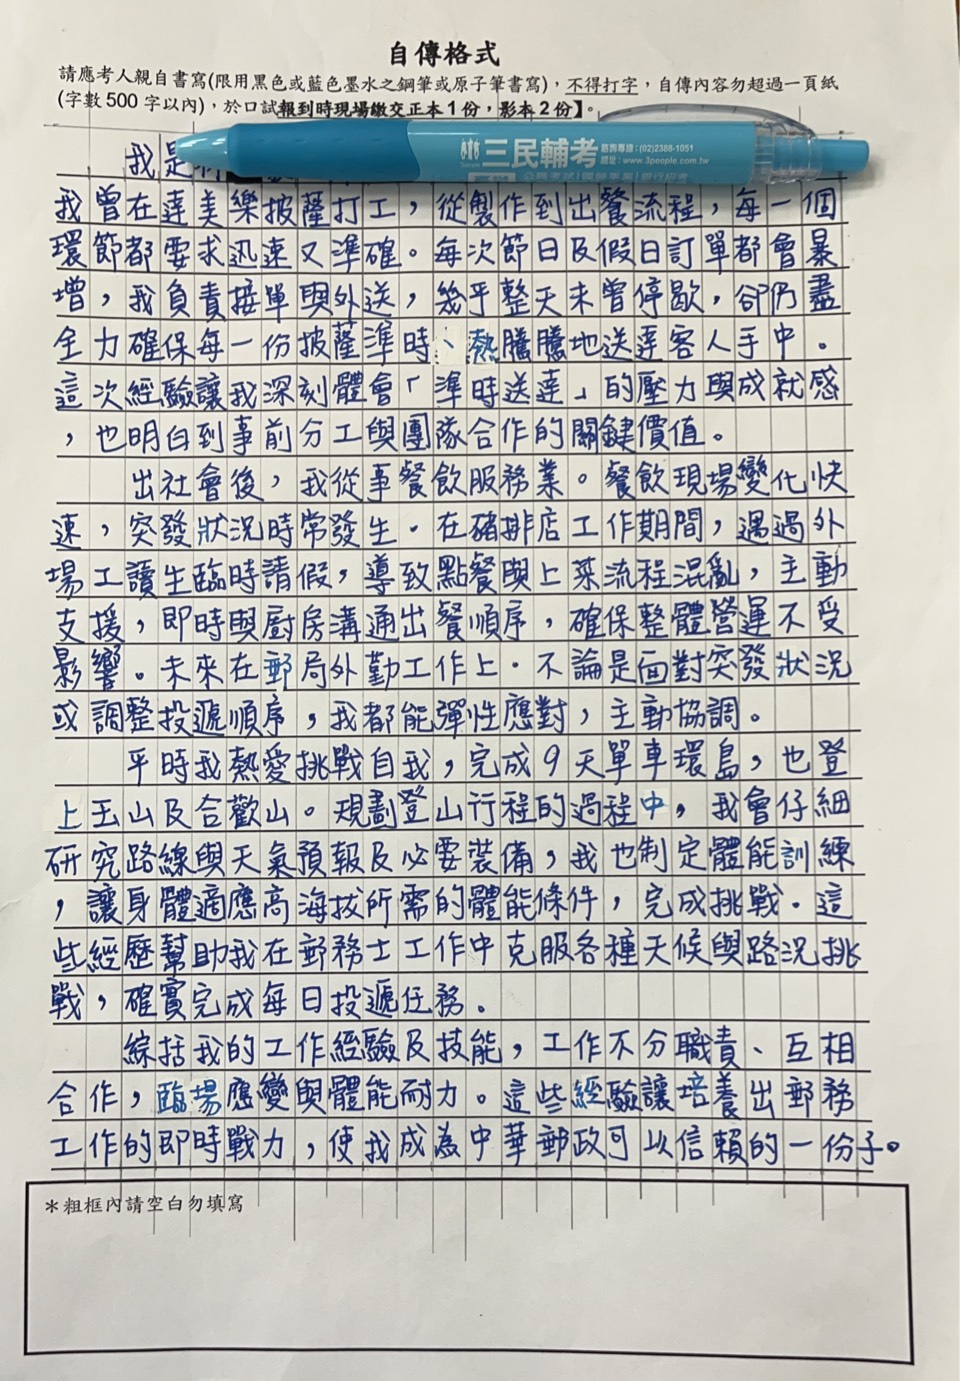 自傳格式
請應考人親自書寫(限用黑色或藍色墨水之鋼筆或原子筆書寫)，不得打字，自傳內容勿超過一頁紙
(字數500字以內)，於口試報到時現場繳交正本1份，影本2份】。
我是
三民輔考 諮詢專線：(02)2388-1051
網址：www.3people.com.tw
我曾在達美樂披薩打工，從製作到出餐流程，每一個
環節都要求迅速又準確。每次節日及假日訂單都會暴
增，我負責接單與外送，幾乎整天未曾停歇，卻仍盡
全力確保每一份披薩準時、熱騰騰地送達客人手中。
這次經驗讓我深刻體會「準時送達」的壓力與成就感
，也明白到事前分工與團隊合作的關鍵價值。
出社會後，我從事餐飲服務業。餐飲現場變化快
速，突發狀況時常發生．在豬排店工作期間，遇過外
場工讀生臨時請假，導致點餐與上菜流程混亂，主動
支援，即時與廚房溝通出餐順序，確保整體營運不受
影響。未來在郵局外勤工作上．不論是面對突發狀況
或調整投遞順序，我都能彈性應對，主動協調。
平時我熱愛挑戰自我，完成9天單車環島，也登
上玉山及合歡山。規劃登山行程的過程中，我會仔細
研究路線與天氣預報及必要裝備，我也制定體能訓練
，讓身體適應高海拔所需的體能條件，完成挑戰．這
些經歷幫助我在郵務士工作中克服各種天候與路況挑
戰，確實完成每日投遞任務。
綜括我的工作經驗及技能，工作不分職責、互相
合作，臨場應變與體能耐力。這些經驗讓培養出郵務
工作的即時戰力，使我成為中華郵政可以信賴的一份子。
＊粗框內請空白勿填寫